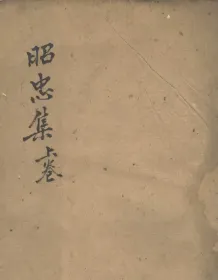 昭忠集上卷